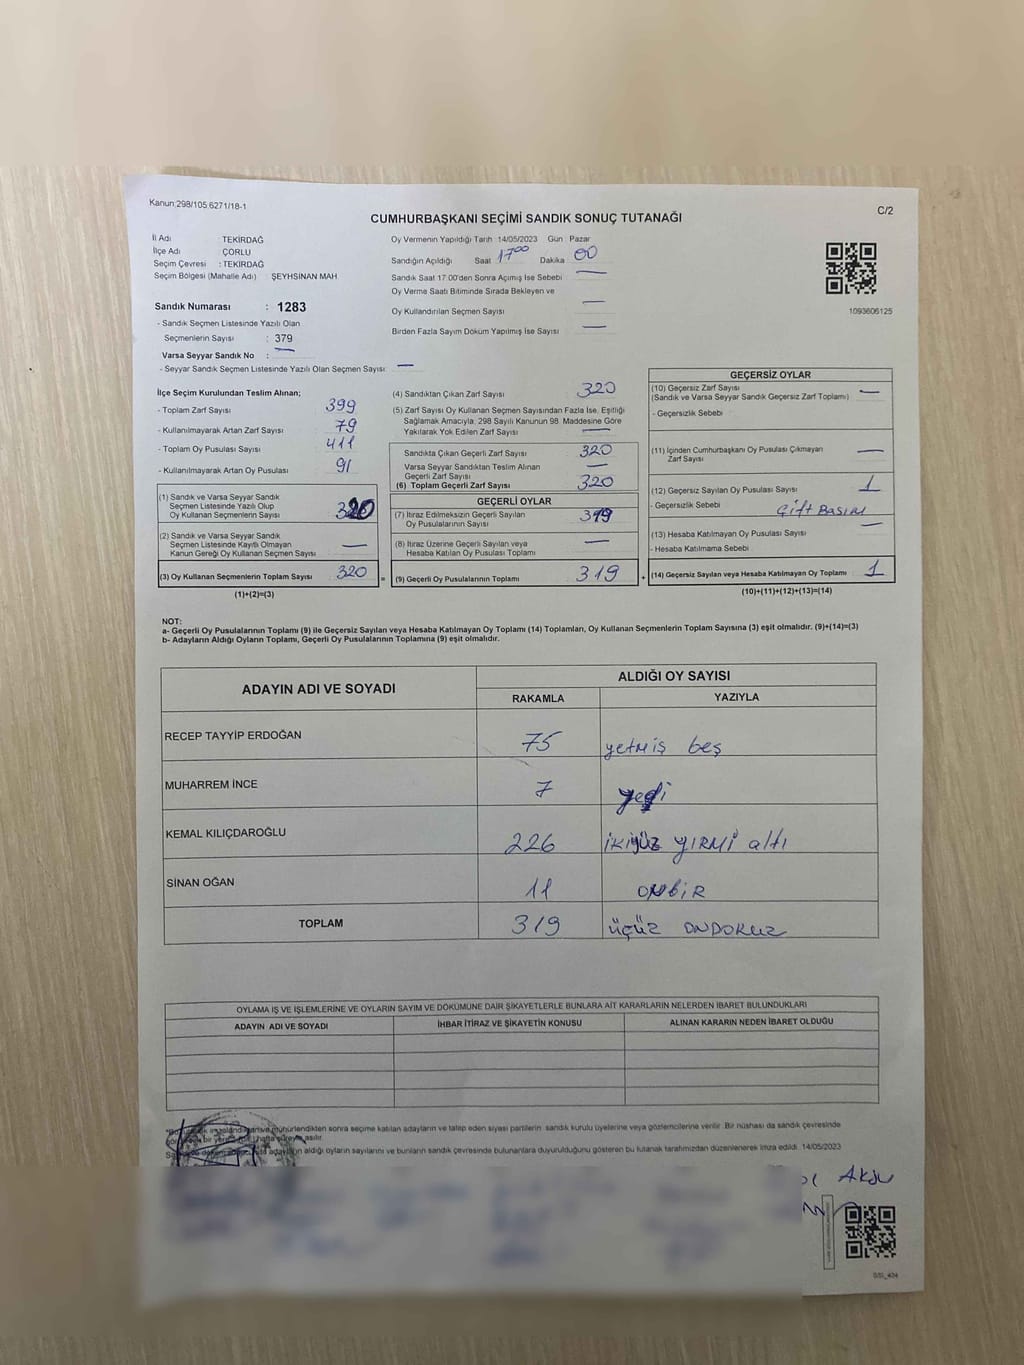 Kanun:298/105,6271/18-1
C/2
CUMHURBAŞKANI SEÇİMİ SANDIK SONUÇ TUTANAĞI
İl Adı : TEKİRDAĞ
İlçe Adı : ÇORLU
Seçim Çevresi : TEKİRDAĞ
Seçim Bölgesi (Mahalle Adı) ŞEYHSİNAN MAH.
Sandık Numarası : 1283
- Sandık Seçmen Listesinde Yazılı Olan
Seçmenlerin Sayısı : 379
Varsa Seyyar Sandık No : —
- Seyyar Sandık Seçmen Listesinde Yazılı Olan Seçmen Sayısı: —
Oy Vermenin Yapıldığı Tarih 14/05/2023 Gün Pazar
Sandığın Açıldığı Saat 17⁰⁰ Dakika 00
Sandık Saat 17:00'den Sonra Açılmış İse Sebebi —
Oy Verme Saati Bitiminde Sırada Bekleyen ve
Oy Kullandırılan Seçmen Sayısı —
Birden Fazla Sayım Döküm Yapılmış İse Sayısı —
1093606125
İlçe Seçim Kurulundan Teslim Alınan;
- Toplam Zarf Sayısı 399
- Kullanılmayarak Artan Zarf Sayısı 79
- Toplam Oy Pusulası Sayısı 411
- Kullanılmayarak Artan Oy Pusulası 91
(1) Sandık ve Varsa Seyyar Sandık
Seçmen Listesinde Yazılı Olup
Oy Kullanan Seçmenlerin Sayısı 320
(2) Sandık ve Varsa Seyyar Sandık
Seçmen Listesinde Kayıtlı Olmayan
Kanun Gereği Oy Kullanan Seçmen Sayısı —
(3) Oy Kullanan Seçmenlerin Toplam Sayısı 320
(1)+(2)=(3)
(4) Sandıktan Çıkan Zarf Sayısı 320
(5) Zarf Sayısı Oy Kullanan Seçmen Sayısından Fazla İse, Eşitliği
Sağlamak Amacıyla, 298 Sayılı Kanunun 98. Maddesine Göre
Yakılarak Yok Edilen Zarf Sayısı —
Sandıkta Çıkan Geçerli Zarf Sayısı 320
Varsa Seyyar Sandıktan Teslim Alınan
Geçerli Zarf Sayısı —
(6) Toplam Geçerli Zarf Sayısı 320
GEÇERLİ OYLAR
(7) İtiraz Edilmeksizin Geçerli Sayılan
Oy Pusulalarının Sayısı 319
(8) İtiraz Üzerine Geçerli Sayılan veya
Hesaba Katılan Oy Pusulası Toplamı —
= (9) Geçerli Oy Pusulalarının Toplamı 319
GEÇERSİZ OYLAR
(10) Geçersiz Zarf Sayısı
(Sandık ve Varsa Seyyar Sandık Geçersiz Zarf Toplamı) —
- Geçersizlik Sebebi
(11) İçinden Cumhurbaşkanı Oy Pusulası Çıkmayan
Zarf Sayısı —
(12) Geçersiz Sayılan Oy Pusulası Sayısı 1
- Geçersizlik Sebebi Çift BASIM
(13) Hesaba Katılmayan Oy Pusulası Sayısı —
- Hesaba Katılmama Sebebi
+ (14) Geçersiz Sayılan veya Hesaba Katılmayan Oy Toplamı 1
(10)+(11)+(12)+(13)=(14)
NOT:
a- Geçerli Oy Pusulalarının Toplamı (9) ile Geçersiz Sayılan veya Hesaba Katılmayan Oy Toplamı (14) Toplamları, Oy Kullanan Seçmenlerin Toplam Sayısına (3) eşit olmalıdır. (9)+(14)=(3)
b- Adayların Aldığı Oyların Toplamı, Geçerli Oy Pusulalarının Toplamına (9) eşit olmalıdır.
ADAYIN ADI VE SOYADI ALDIĞI OY SAYISI
RAKAMLA YAZIYLA
RECEP TAYYİP ERDOĞAN 75 yetmiş beş
MUHARREM İNCE 7 yedi
KEMAL KILIÇDAROĞLU 226 ikiyüz YIRMİ altı
SİNAN OĞAN 11 onbiR
TOPLAM 319 üçüz ONDOKUZ
OYLAMA İŞ VE İŞLEMLERİNE VE OYLARIN SAYIM VE DÖKÜMÜNE DAİR ŞİKAYETLERLE BUNLARA AİT KARARLARIN NELERDEN İBARET BULUNDUKLARI
ADAYIN ADI VE SOYADI İHBAR İTİRAZ VE ŞİKAYETİN KONUSU ALINAN KARARIN NEDEN İBARET OLDUĞU
mühürlendikten sonra seçime katılan adayların ve talep eden siyasi partilerin sandık kurulu üyelerine veya gözlemcilerine verilir. Bir nüshası da sandık çevresinde
bir hafta süreyle asılır.
adayların aldığı oyların sayılarını ve bunların sandık çevresinde bulunanlara duyurulduğunu gösteren bu tutanak tarafımızdan düzenlenerek imza edildi. 14/05/2023
Aksu